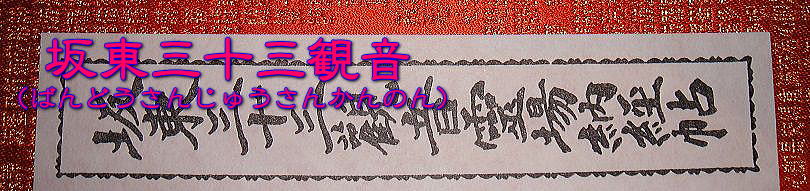 坂東三十三観音
(ばんどうさんじゅうさんかんのん)
坂東三十三観音霊場納経帖